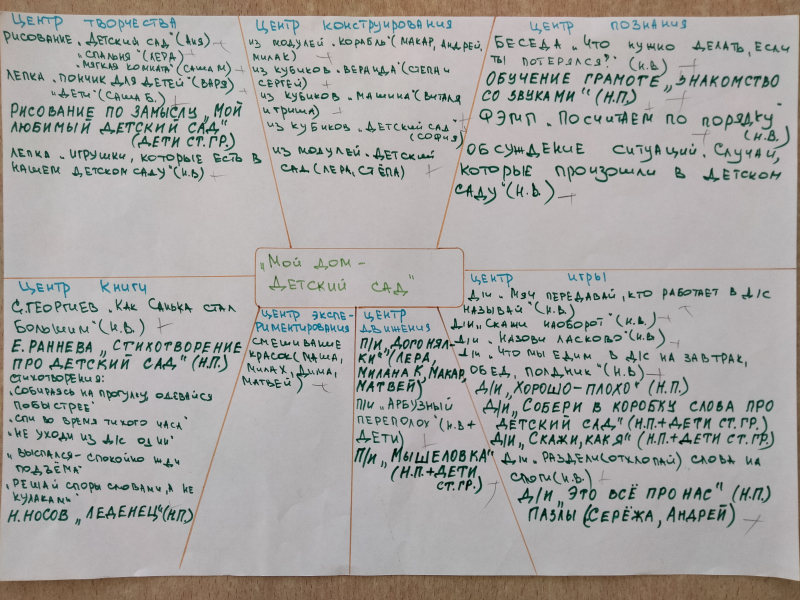 ЦЕНТР ТВОРЧЕСТВА
РИСОВАНИЕ „ДЕТСКИЙ САД" (АНЯ)
„СПАЛЬНЯ" (ЛЕРА)
„МЯГКАЯ КОМНАТА" (САША М)
ЛЕПКА „ПОНЧИК ДЛЯ ДЕТЕЙ" (ВАРЯ)
„ДЕТИ" (САША Б.)
РИСОВАНИЕ ПО ЗАМЫСЛУ „МОЙ
ЛЮБИМЫЙ ДЕТСКИЙ САД"
(ДЕТИ СТ. ГР.)
ЛЕПКА „ИГРУШКИ, КОТОРЫЕ ЕСТЬ В
НАШЕМ ДЕТСКОМ САДУ" (Н.В)
ЦЕНТР КОНСТРУИРОВАНИЯ
ИЗ МОДУЛЕЙ „КОРАБЛЬ" (МАКАР, АНДРЕЙ,
МИЛАК)
ИЗ КУБИКОВ „ВЕРАНДА" (СТЕПА И
СЕРГЕЙ)
ИЗ КУБИКОВ „МАШИНА" (ВИТАЛЯ
И ГРИША)
ИЗ КУБИКОВ „ДЕТСКИЙ САД"
(СОФИЯ)
ИЗ МОДУЛЕЙ „ДЕТСКИЙ
САД (ЛЕРА, СТЁПА)
ЦЕНТР ПОЗНАНИЯ
БЕСЕДА „ЧТО НУЖНО ДЕЛАТЬ, ЕСЛИ
ТЫ ПОТЕРЯЛСЯ?" (Н.В)
ОБУЧЕНИЕ ГРАМОТЕ „ЗНАКОМСТВО
СО ЗВУКАМИ" (Н.П.)
ФЭМП „ПОСЧИТАЕМ ПО ПОРЯДКУ"
(Н.В.)
ОБСУЖДЕНИЕ СИТУАЦИЙ „СЛУЧАИ,
КОТОРЫЕ ПРОИЗОШЛИ В ДЕТСКОМ
САДУ" (Н.В.)
„МОЙ ДОМ -
ДЕТСКИЙ САД"
ЦЕНТР КНИГИ
С. ГЕОРГИЕВ „КАК САНЬКА СТАЛ
БОЛЬШИМ" (Н.В.)
Е. РАННЕВА „СТИХОТВОРЕНИЕ
ПРО ДЕТСКИЙ САД" (Н.П)
СТИХОТВОРЕНИЯ:
„СОБИРАЯСЬ НА ПРОГУЛКУ, ОДЕВАЙСЯ
ПОБЫСТРЕЕ"
„СПИ ВО ВРЕМЯ ТИХОГО ЧАСА"
„НЕ УХОДИ ИЗ Д/С ОДИН"
„ВЫСПАЛСЯ - СПОКОЙНО ЖДИ
ПОДЪЁМА"
„РЕШАЙ СПОРЫ СЛОВАМИ, А НЕ
КУЛАКАМИ"
Н. НОСОВ „ЛЕДЕНЕЦ" (Н.П.)
ЦЕНТР ЭКСПЕ-
РИМЕНТИРОВАНИЯ
СМЕШИВАНИЕ
КРАСОК (МАША,
МИЛАХ, ДИМА,
МАТВЕЙ)
ЦЕНТР
ДВИЖЕНИЯ
П/И „ДОГОНЯЛ-
КИ" (ЛЕРА,
МИЛАНА К, МАКАР,
МАТВЕЙ)
П/И „АРБУЗНЫЙ
ПЕРЕПОЛОХ" (Н.В+
ДЕТИ)
П/И „МЫШЕЛОВКА"
(Н.П.+ДЕТИ
СТ. ГР.)
ЦЕНТР ИГРЫ
Д/И „МЯЧ ПЕРЕДАВАЙ, КТО РАБОТАЕТ В Д/С
НАЗЫВАЙ" (Н.В)
Д/И „СКАЖИ НАОБОРОТ" (Н.В.)
Д/И „НАЗОВИ ЛАСКОВО" (Н.В)
Д/И „ЧТО МЫ ЕДИМ В Д/С НА ЗАВТРАК,
ОБЕД, ПОЛДНИК" (Н.В)
Д/И „ХОРОШО-ПЛОХО" (Н.П.)
Д/И „СОБЕРИ В КОРОБКУ СЛОВА ПРО
ДЕТСКИЙ САД" (Н.П+ДЕТИ СТ. ГР.)
Д/И „СКАЖИ, КАК Я" (Н.П+ДЕТИ СТ. ГР.)
Д/И „РАЗДЕЛИ (ОТХЛОПАЙ) СЛОВА НА
СЛОГИ (Н.В.)
Д/И „ЭТО ВСЁ ПРО НАС" (Н.П.)
ПАЗЛЫ (СЕРЁЖА, АНДРЕЙ)